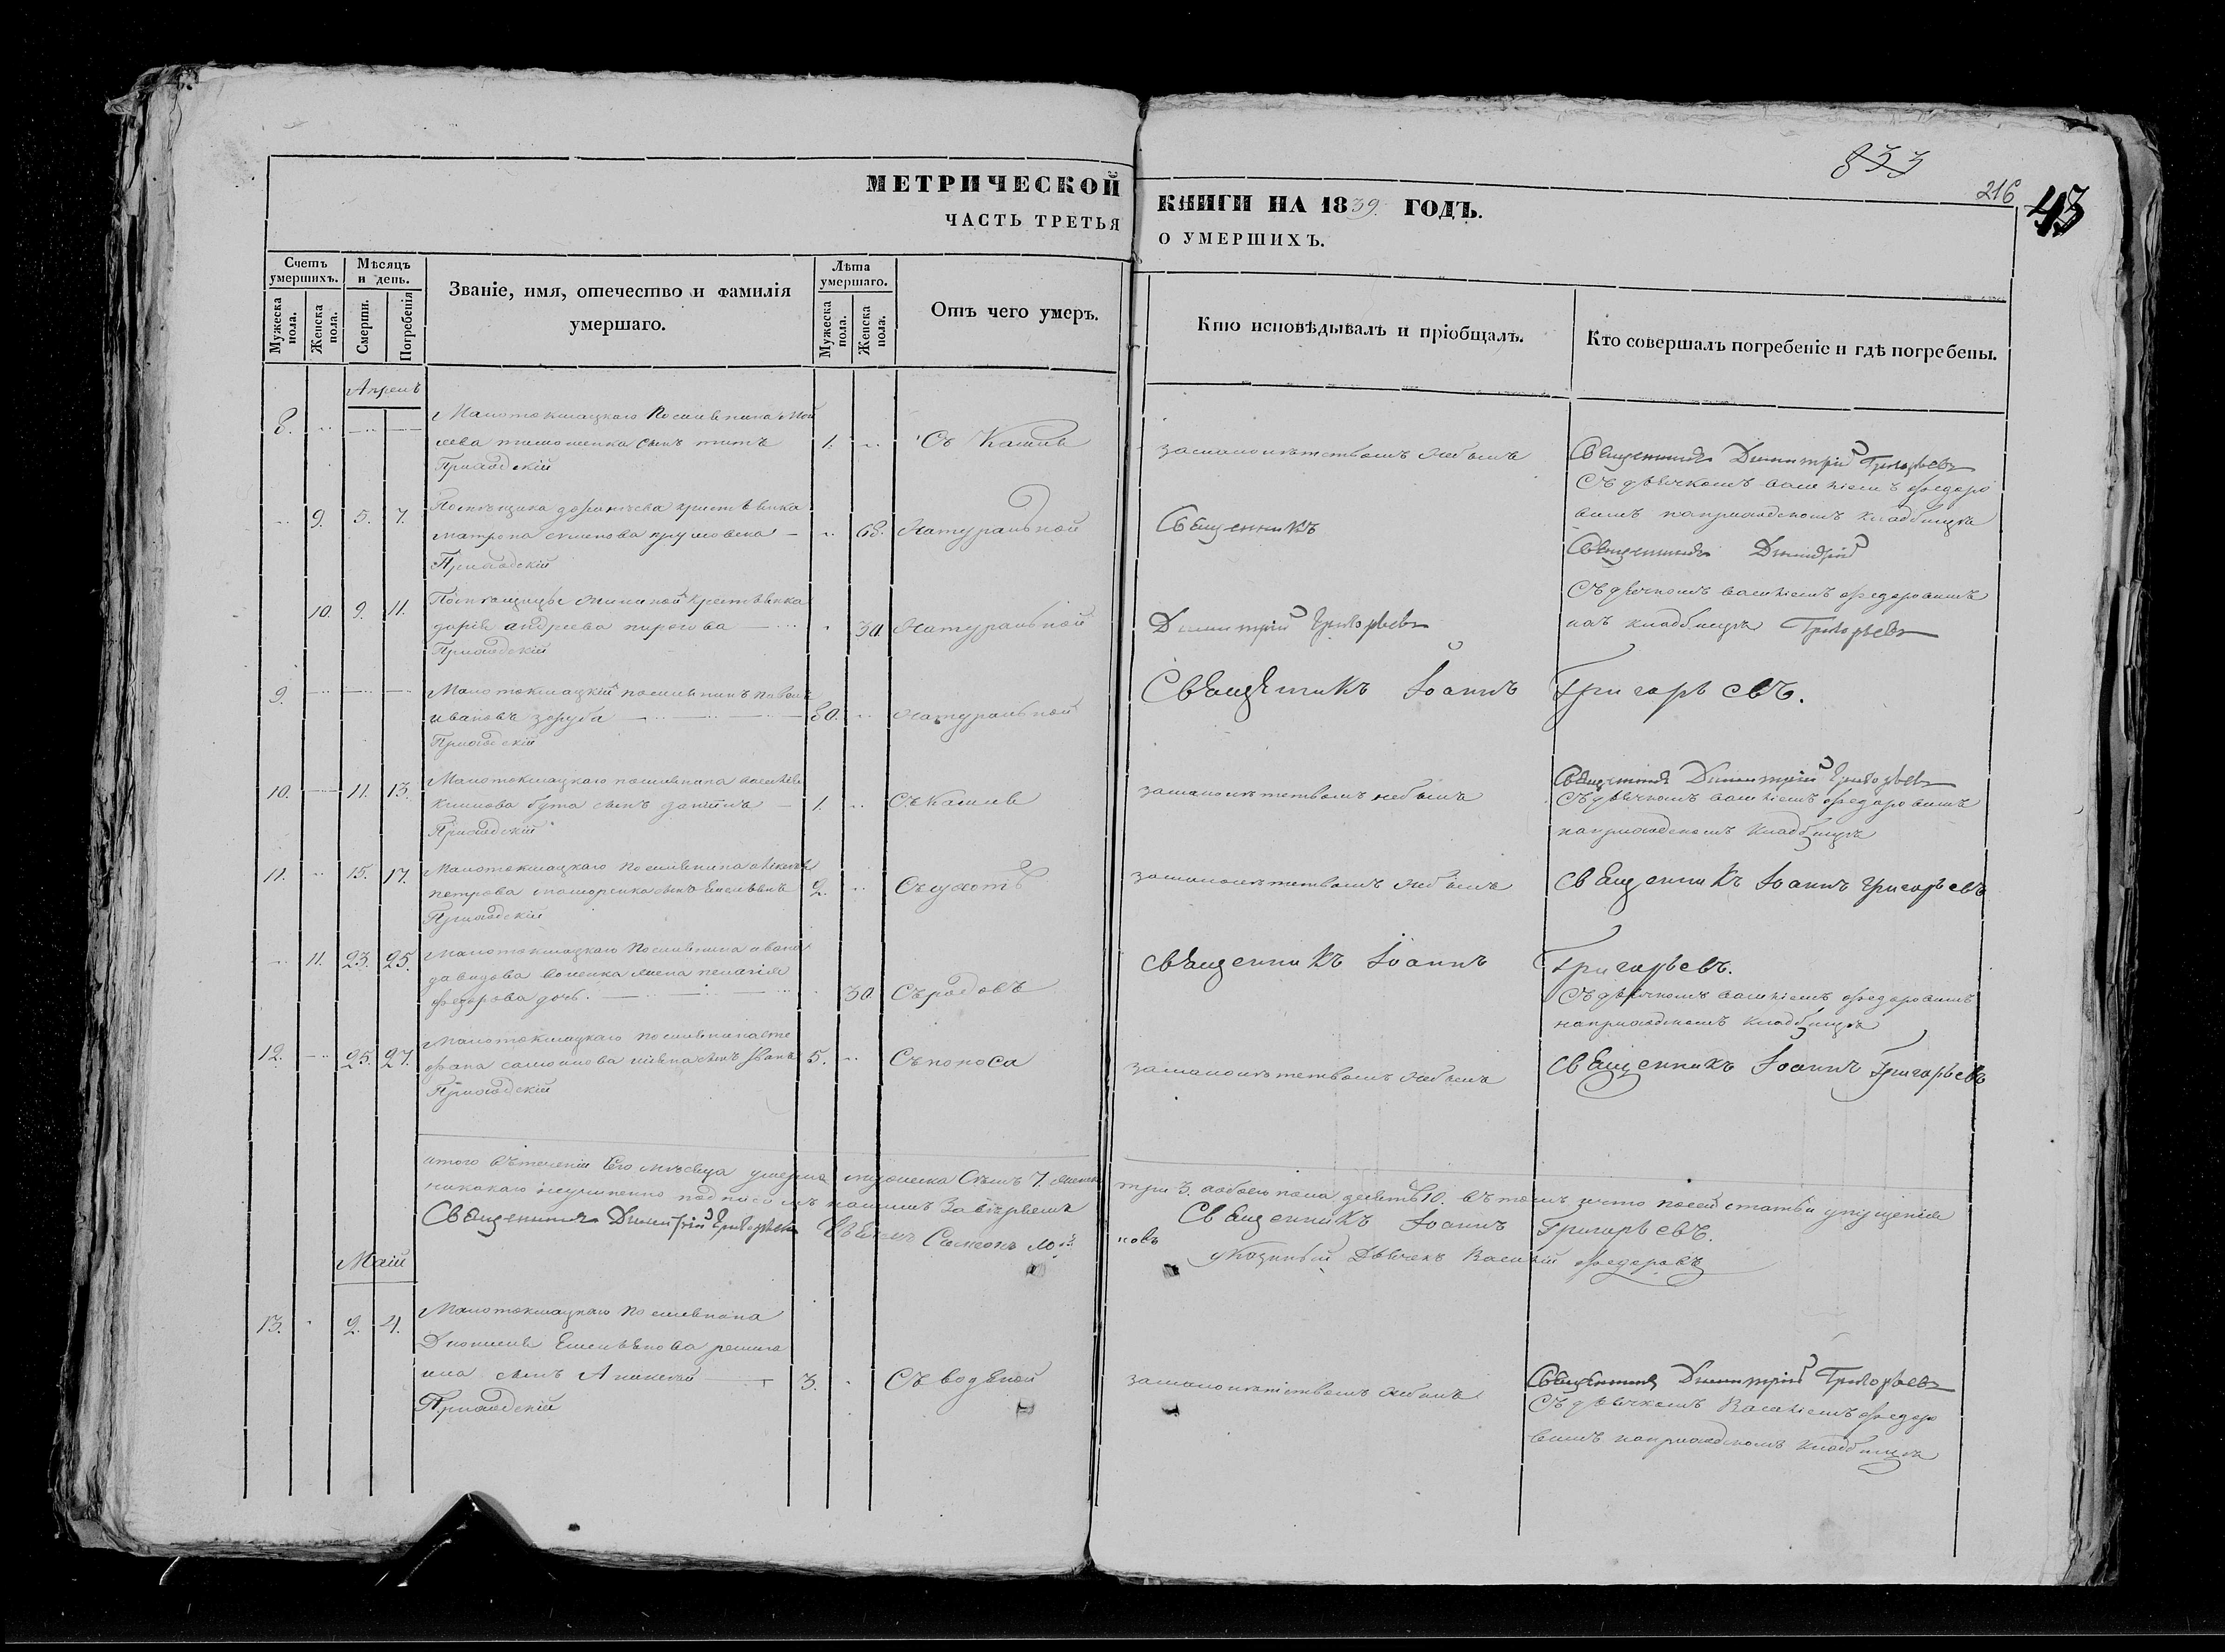 833
216
43
МЕТРИЧЕСКОЙ
ЧАСТЬ ТРЕТЬЯ
КНИГИ НА 1839. ГОДЪ.
О УМЕРШИХЪ.
Счетъ умершихъ.
Мужеска пола.
Женска пола.
Мѣсяцъ и день.
Смерти.
Погребенія
Званіе, имя, отечество и фамилія
умершаго.
Лѣта умершаго.
Мужеска пола.
Женска пола.
Отъ чего умеръ.
Кто исповѣдывалъ и пріобщалъ.
Кто совершалъ погребеніе и гдѣ погребены.
Апрель
8.
Малотокмацкаго Поселянина
сынъ титъ
Приходскій
1.
Съ Кашля
замалолѣтствомъ небылъ
Священникъ Димитрій Григорьевъ
Съ дьячкомъ василіемъ федоро
вымъ наприходскомъ кладбищѣ
9. 5. 7.
Помѣщика крестьянка
матрона семенова
Приходскій
68.
Натуральной
Священникъ
Священникъ Димитрій
10. 9. 11.
Помѣщицы крестьянка
дарія андреева пирогова
Приходскій
30.
Натуральной
Димитрій Григорьевъ
Съ дьячкомъ василіемъ федоровымъ
кладбищѣ Григорьевъ
9.
Малотокмацкій поселянинъ павелъ
ивановъ заруба
Приходскій
80.
Натуральной
Священникъ Іоаннъ
Григорьевъ.
10. 11. 13.
Малотокмацкаго поселянина василія
климова бута сынъ
Приходскій
1.
Съ Кашля
замалолѣтствомъ небылъ
Священникъ Димитрій Григорьевъ
Съ дьячкомъ василіемъ федоровымъ
наприходскомъ кладбищѣ
11. 15. 17.
Малотокмацкаго Поселянина
петрова сынъ Емельянъ
Приходскій
2.
Съ сухотъ
замалолѣтствомъ небылъ
Священникъ Іоаннъ Григорьевъ
11. 23. 25.
Малотокмацкаго Поселянина ивана
давидова жена пелагія
федорова дочь.
30.
Съ родовъ
Священникъ Іоаннъ
Григорьевъ.
Съ дьячкомъ василіемъ федоровымъ
наприходскомъ кладбищѣ
12. 25. 27.
Малотокмацкаго поселянина сте
фана самойлова сынъ Іванъ
Приходскій
5.
Съ поноса
замалолѣтствомъ небылъ
Священникъ Іоаннъ Григорьевъ
итого втеченіи Сего мѣсяца умерло мужеска Семь 7. женска три 3. а обоего пола десять 10. въ томъ что посей статьи упущенія
никакаго неучиненно подписомъ нашимъ Завѣряемъ
Священникъ Димитрій Григорьевъ
Священникъ Іоаннъ Григорьевъ.
указный Дьячекъ Василій федоровъ
Маій
13. 2. 4.
Малотокмацкаго Поселянина
Дионисія Емельянова
сынъ Алексѣй
Приходскій
3.
Съ водяной
замалолѣтствомъ небылъ
Священникъ Димитрій Григорьевъ
Съ дьячкомъ Василіемъ федоро
вымъ наприходскомъ кладбищѣ